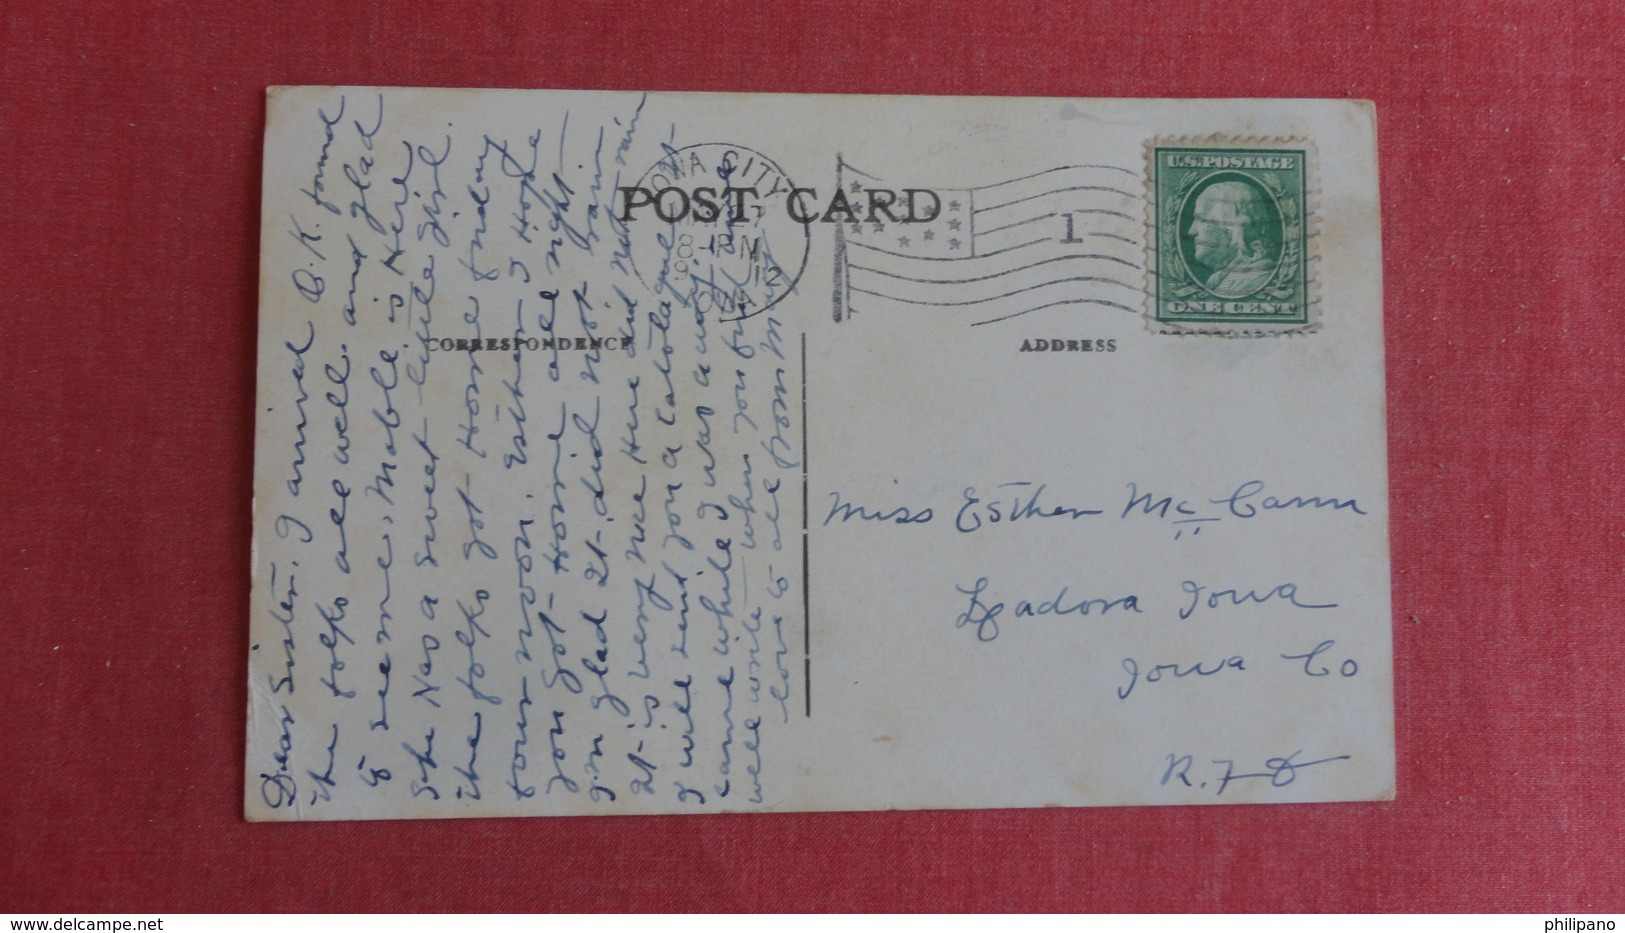 POST CARD
CORRESPONDENCE
ADDRESS
U.S. POSTAGE
ONE CENT
IOWA CITY
8-PM
1912
IOWA
1
Dear Sister, I arrived O.K. found
the folks all well. and glad
to see me. Mable is Here
She Has a sweet little girl.
the folks got Home friday
fournoon. Esther I Hope
you got Home all right
I'm glad it did not rain
it is very nice Here did not rain
I will send you a catologue it
came while I was away
will write when you find time
love to all from Mary
Miss Esther McCann
Ladora Iowa
Iowa Co
R.F.D
philipano.com